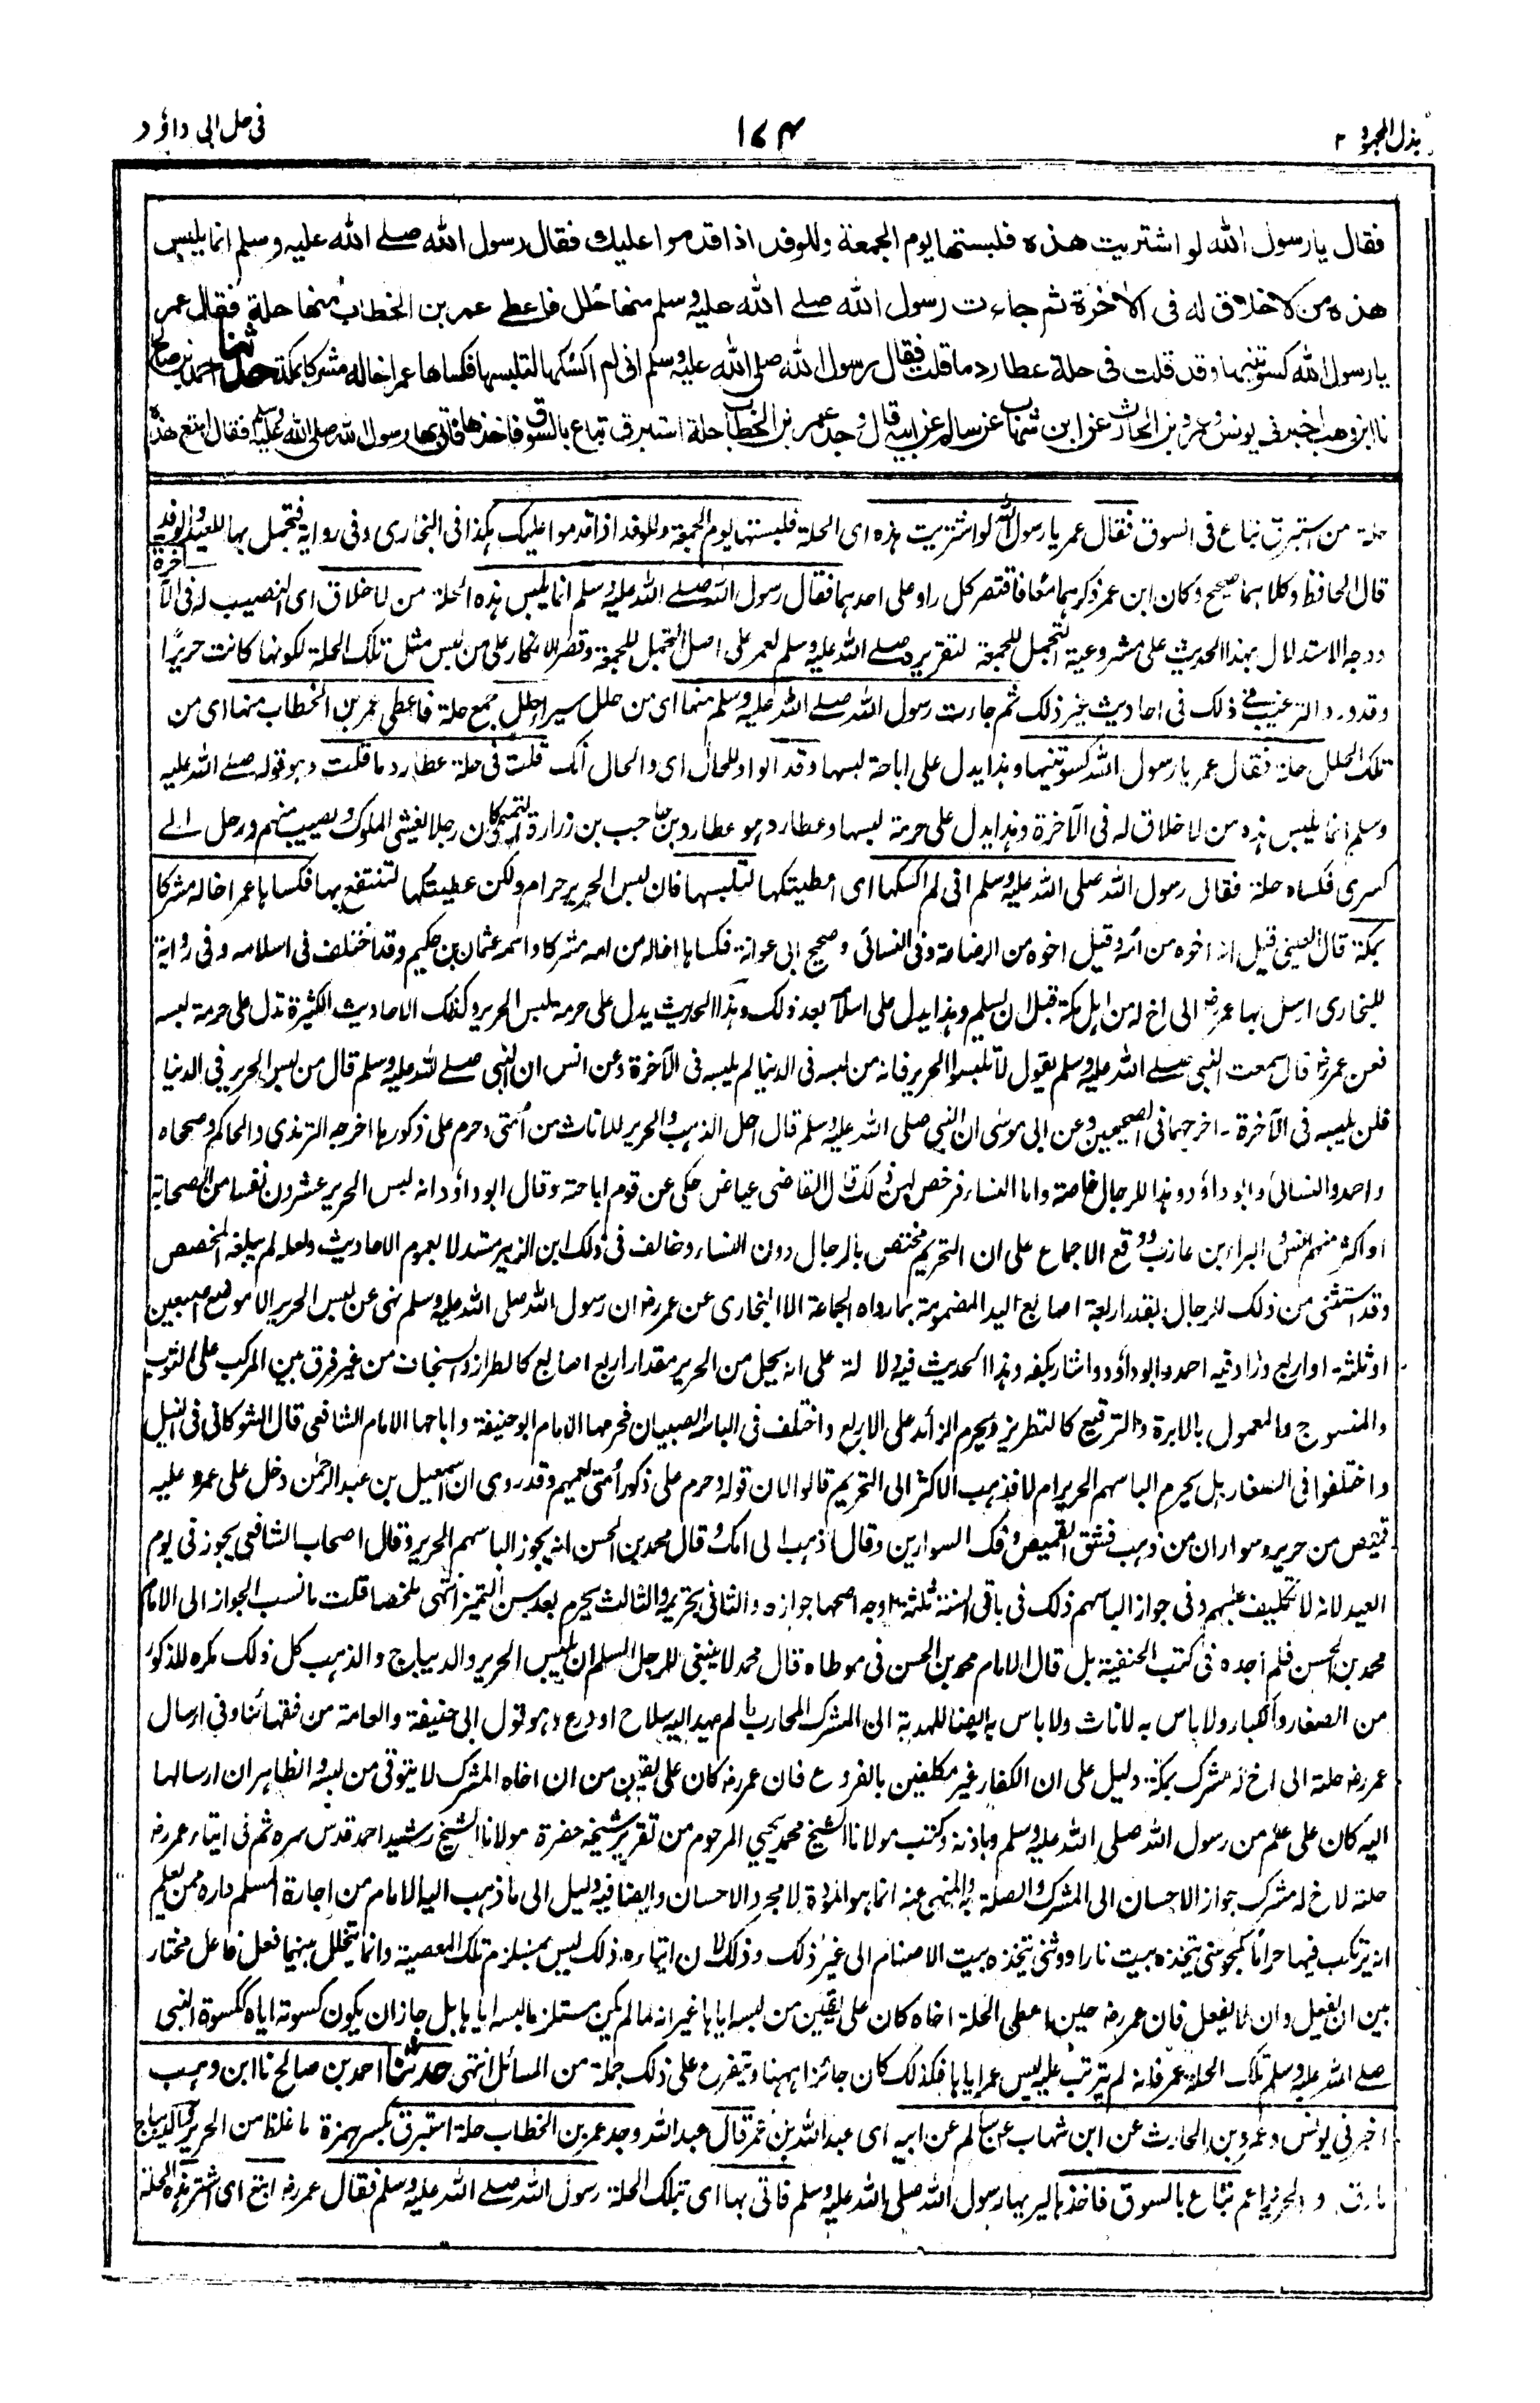 بذل المجهود ٢
١٧٤
فى حل ابى داؤد
فقال يا رسول الله لو اشتريت هذه فلبستها يوم الجمعة وللوفد اذا قدموا عليك فقال رسول الله صلے الله عليه وسلم انما يلبس
هذه من لا خلاق له فى الاخرة ثم جاءت رسول الله صلے الله عليه وسلم منها حلل فاعطے عمر بن الخطاب منها حلة فقال عمر
يا رسول الله كسوتنيها وقد قلت فى حلة عطارد ما قلت فقال رسول الله صلى الله عليه وسلم انى لم اكسكها لتلبسها فكساها عمر اخا له مشركا بمكة حدثنا احمد بن صالح
نا ابن وهب اخبرنى يونس وعمرو بن الحارث عن ابن شهاب عن سالم عن ابيه قال وجد عمر بن الخطاب حلة استبرق تباع بالسوق فاخذها فاتى بها رسول الله صلى الله عليه وسلم فقال ابتع هذه
حلة من استبرق تباع فى السوق فقال عمر يا رسول الله لو اشتريت هذه اى الحلة فلبستها يوم الجمعة وللوفد اذا قدموا عليك هكذا فى البخارى وفى رواية فتجمل بها للعيد والوفد
قال الحافظ وكلاهما صحيح وكان ابن عمر ذكرهما معا فاقتصر كل راو على احدهما فقال رسول الله صلے الله عليه وسلم انما يلبس هذه الحلة من لا خلاق اى لا نصيب له فى الآخرة
ووجه الاستدلال بهذا الحديث على مشروعية التجمل للجمعة لتقريره صلے الله عليه وسلم لعمر على اصل التجمل للجمعة وقصر الانكار على من لبس مثل تلك الحلة لكونها كانت حريرًا
وقد ورد الترغيب فى ذلك فى احاديث غير ذلك ثم جاءت رسول الله صلے الله عليه وسلم منها اى من حلل سيراء حلل جمع حلة فاعطى عمر بن الخطاب منها اى من
تلك الحلل حلة فقال عمر يا رسول الله كسوتنيها وهذا يدل على اباحة لبسها وقد الواو للحال اى والحال انك قلت فى حلة عطارد ما قلت وهو قوله صلے الله عليه
وسلم انما يلبس هذه من لا خلاق له فى الآخرة وهذا يدل على حرمة لبسها وعطارد هو عطارد بن حاجب بن زرارة التميمى كان رجلا يغشى الملوك ويصيب منهم ورحل الے
كسرى فكساه حلة فقال رسول الله صلى الله عليه وسلم انى لم اكسكها اى اعطيتكها لتلبسها فان لبس الحرير حرام ولكن عطيتكها لتنتفع بها فكساها عمر اخا له مشركا
بمكة قال العينى قيل انه اخوه من امه وقيل اخوه من الرضاعة وفى النسائى وصحيح ابى عوانة فكساها اخا له من امه مشركا واسمه عثمان بن حكيم وقد اختلف فى اسلامه وفى رواية
للبخارى ارسل بها عمر رض الى اخ له من اهل مكة قبل ان يسلم وهذا يدل على اسلامه بعد ذلك وهذا الحديث يدل على حرمة لبس الحرير وكذلك الاحاديث الكثيرة تدل على حرمة لبسه
فعن عمر رض قال سمعت النبى صلے الله عليه وسلم يقول لا تلبسوا الحرير فانه من لبسه فى الدنيا لم يلبسه فى الآخرة وعن انس ان النبى صلے الله عليه وسلم قال من لبس الحرير فى الدنيا
فلن يلبسه فى الآخرة ـ اخرجهما فى الصحيحين وعن ابى موسى ان النبى صلى الله عليه وسلم قال احل الذهب والحرير للاناث من امتى وحرم على ذكورها اخرجه الترمذى والحاكم وصححاه
واحمد والنسائى وابو داؤد وهذا للرجال خاصة واما النساء فرخص لهن ذلك قال القاضى عياض حكى عن قوم اباحته وقال ابو داؤد انه لبس الحرير عشرون نفسا من الصحابة
او اكثر منهم انس والبراء بن عازب ووقع الاجماع على ان التحريم مختص بالرجال دون النساء وخالف فى ذلك ابن الزبير مستدلا بعموم الاحاديث ولعله لم يبلغه المخصص
وقد استثنى من ذلك للرجال بقدر اربعة اصابع اليد المضمومة بما رواه الجماعة الا البخارى عن عمر رض ان رسول الله صلى الله عليه وسلم نهى عن لبس الحرير الا موضع اصبعين
او ثلثة او اربع وزاد فيه احمد وابو داؤد واشار بكفه وهذا الحديث فيه دلالة على انه يحل من الحرير مقدار اربع اصابع كالطراز والسنجاف من غير فرق بين المركب على الثوب
والمنسوج والمعمول بالابرة والترقيع كالتطريز ويحرم الزائد على الاربع واختلف فى الباس الصبيان فحرمها الامام ابو حنيفة واباحها الامام الشافعى قال الشوكانى فى النيل
واختلفوا فى الصغار هل يحرم الباسهم الحرير ام لا فذهب الاكثر الى التحريم قالوا لان قوله وحرم على ذكور أمتى يعمهم وقد روى ان اسمعيل بن عبد الرحمن دخل على عمر وعليه
قميص من حرير وسواران من ذهب فشق القميص وفك السوارين وقال اذهب الى امك وقال محمد بن الحسن انه يجوز الباسهم الحرير وقال اصحاب الشافعى يجوز فى يوم
العيد لانه لا تكليف عليهم وفى جواز الباسهم ذلك فى باقى السنة ثلثة اوجه اصحها جوازه والثانى تحريمه والثالث يحرم بعد سن التميز انتهى ملخصا قلت ما نسب الجواز الى الامام
محمد بن الحسن فلم اجده فى كتب الحنفية بل قال الامام محمد بن الحسن فى موطاه قال محمد لا ينبغى للرجل المسلم ان يلبس الحرير والديباج والذهب كل ذلك مكره للذكور
من الصغار والكبار ولا باس به لاناث ولا باس به ايضا للهدية الى المشرك المحارب ما لم يهد اليه سلاح او درع وهو قول ابى حنيفة والعامة من فقهائنا وفى ارسال
عمر رض حلة الى اخ له مشرك بمكة دليل على ان الكفار غير مكلفين بالفروع فان عمر رض كان على يقين من ان اخاه المشرك لا يتوقى من لبسه والظاهر ان ارسالها
اليه كان على علم من رسول الله صلى الله عليه وسلم وباذنه وكتب مولانا الشيخ محمد يحيى المرحوم من تقرير شيخه حضرة مولانا الشيخ رشيد احمد قدس سره ثم فى ايتاء عمر رض
حلة لاخ له مشرك جواز الاحسان الى المشرك والصلة به والمنهى عنه انما هو المودة لا مجرد الاحسان وايضا فيه دليل الى ما ذهب اليه الامام من اجارة المسلم داره ممن يعلم
انه يرتكب فيها حراما كمجوسى يتخذه بيت نار او وثنى يتخذه بيت الاصنام الى غير ذلك وذلك لان ايتاءه ذلك ليس بمستلزم تلك المعصية وانما يتخلل بينهما فعل فاعل مختار
بين ان يفعل وان لا يفعل فان عمر رض حين اعطى الحلة اخاه كان على يقين من لبسه اياها غير انه لما لم يكن مستلزما لبسه اياها بل جاز ان يكون كسوته اياه ككسوة النبى
صلے الله عليه وسلم تلك الحلة عمر فانه لم يترتب عليه لبس عمر اياها فكذلك كان جائزا ههنا ويتفرع على ذلك جملة من المسائل انتهى حدثنا احمد بن صالح نا ابن وهب
اخبرنى يونس وعمرو بن الحارث عن ابن شهاب عن سالم عن ابيه اى عبد الله بن عمر قال عبد الله وجد عمر بن الخطاب حلة استبرق بكسر همزة ما غلظ من الحرير والديباج
مارق والحرير اعم تباع بالسوق فاخذها ليريها رسول الله صلى الله عليه وسلم فاتى بها اى بتلك الحلة رسول الله صلے الله عليه وسلم فقال عمر رض ابتع اى اشتر هذه الحلة